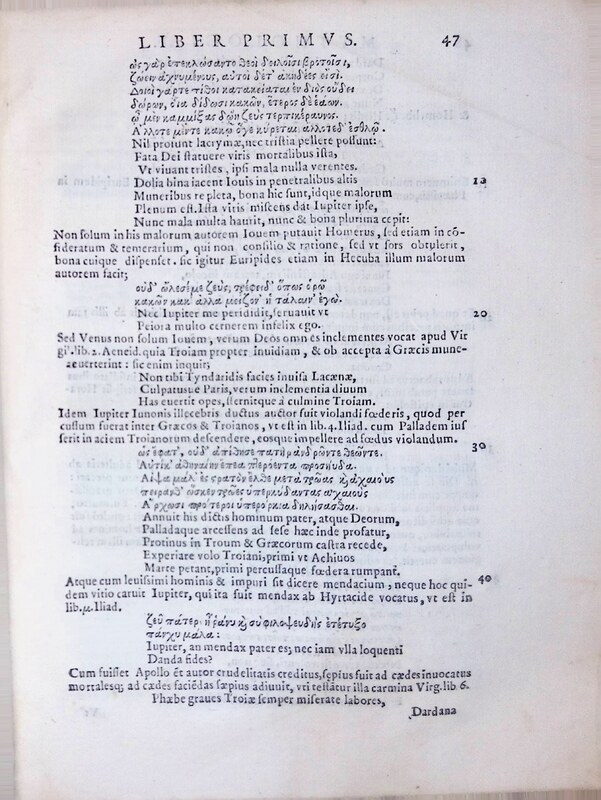 LIBER PRIMVS. 47
ὡς γὰρ ἐπεκλώσαντο θεοὶ δειλοῖσι βροτοῖσι,
ζώειν ἀχνυμένους, αὐτοὶ δέ τ' ἀκηδέες εἰσί.
Δοιοὶ γάρ τε πίθοι κατακείαται ἐν διὸς οὔδει
δώρων, οἷα δίδωσι κακῶν, ἕτερος δὲ ἐάων.
ᾧ μὲν καμμίξας δώῃ ζεὺς τερπικέραυνος.
Ἄλλοτε μέν τε κακῷ ὅγε κύρεται ἄλλοτε δ' ἐσθλῷ.
Nil profunt lacrymæ, nec triſtia pellere poſſunt:
Fata Dei ſtatuere viris mortalibus iſta,
Vt viuant triſtes, ipſi mala nulla verentes.
Dolia bina iacent Iouis in penetralibus altis 10
Muneribus repleta, bona hic ſunt, idque malorum
Plenum eſt. Iſta vitis miſcens dat Iupiter ipſe,
Nunc mala multa haurit, nunc & bona plurima cepit:
Non ſolum in his malorum autorem Iouem putauit Homerus, ſed etiam in cō-
ſideratum & temerarium, qui non conſilio & ratione, ſed vt fors obtulerit,
bona cuique diſpenſet. ſic igitur Euripides etiam in Hecuba illum malorum
autorem facit;
οὐδ' ὤλεσέ με ζεὺς, τρέφει δ' ὅπως ὁρῶ
κακῶν κάκ' ἄλλα μείζον' ἡ τάλαιν' ἐγώ.
Nec Iupiter me perididit, ſeruauit vt 20
Peiora multo cernerem infelix ego.
Sed Venus non ſolum Iouem, verum Deos omnes inclementes vocat apud Vir
gi'. lib. 2. Aeneid. quia Troiam propter inuidiam, & ob accepta à Græcis mune-
a euerterint: ſic enim inquit;
Non tibi Tyndaridis facies inuiſa Lacænæ,
Culpatusue Paris, verum inclementia diuum
Has euertit opes, ſternitque à culmine Troiam.
Idem Iupiter Iunonis illecebris ductus auctor fuit violandi fœderis, quod per
cuſſum fuerat inter Græcos & Troianos, vt eſt in lib. 4. Iliad. cum Palladem iuſ
ſerit in aciem Troianorum deſcendere, eosque impellere ad fœdus violandum.
ὣς ἔφατ', οὐδ' ἀπίθησε πατὴρ ἀνδρῶν τε θεῶν τε. 30
Αὐτίκ' ἀθηναίην ἔπεα πτερόεντα προσηύδα.
Αἶψα μάλ' ἐς στρατὸν ἐλθὲ μετὰ τρῶας κ̀ ἀχαιοὺς
πειρᾶν δ' ὥς κεν τρῶες ὑπερκύδαντας ἀχαιοὺς
Ἄρχωσι πρότεροι ὑπὲρ ὅρκια δηλήσασθαι.
Annuit his dictis hominum pater, atque Deorum,
Palladaque arceſſens ad ſeſe hæc inde profatur,
Protinus in Troum & Græcorum caſtra recede,
Experiare volo Troiani, primi vt Achiuos
Marte petant, primi percuſſaque fœdera rumpāt.
Atque cum leuiſſimi hominis & impuri ſit dicere mendacium, neque hoc qui- 40
dem vitio caruit Iupiter, qui ita fuit mendax ab Hyrtacide vocatus, vt eſt in
lib. μ. Iliad.
ζεῦ πάτερ ἦ ῥά νυ κ̀ σὺ φιλοψευδὴς ἐτέτυξο
πάγχυ μάλα:
Iupiter, an mendax pater es; nec iam vlla loquenti
Danda fides?
Cum fuiſſet Apollo ēt autor crudelitatis creditus, ſępius fuit ad cædes inuocatus
mortalesq; ad cædes faciēdas ſæpius adiuuit, vti teſtātur illa carmina Virg. lib 6.
Phœbe graues Troiæ ſemper miſerate labores,
Dardana